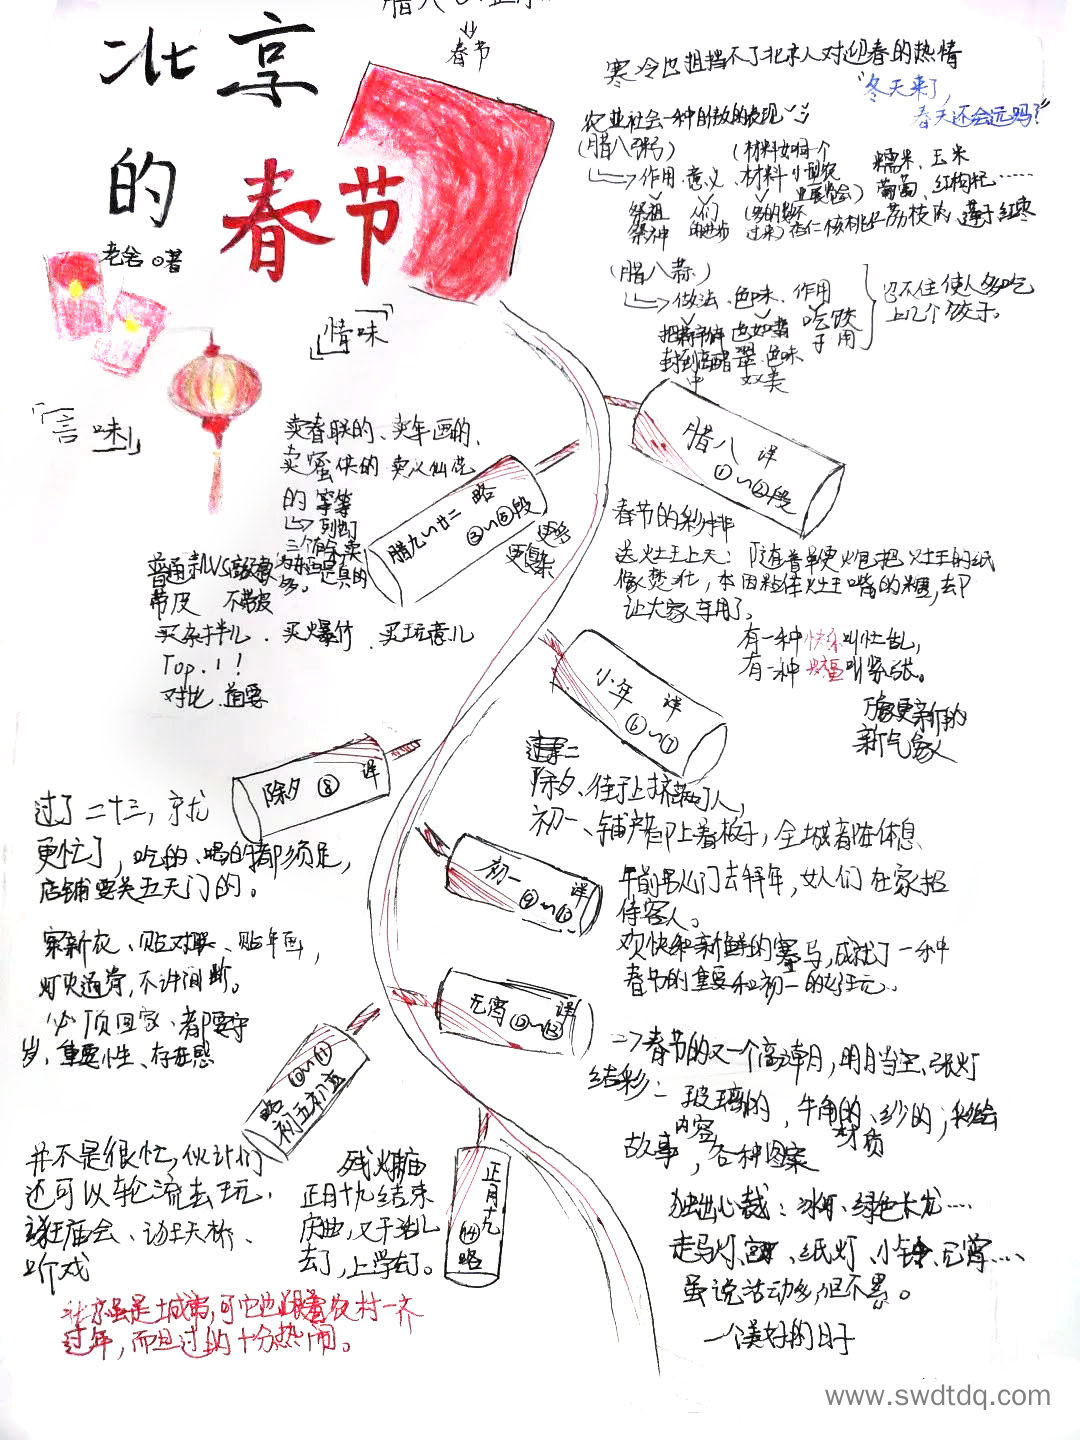 北京
的春节
老舍 著
春节
「情味」
「言味」
寒冷也阻挡不了北京人对迎春的热情
"冬天来了,
春天还会远吗?"
农业社会一种自傲的表现
(腊八粥)
作用、意义、材料
(材料如同一个
小型农
业展览会)
糯米、玉米
葡萄、红枸杞……
祭祖
祭神
人们
荔枝肉 莲子 红枣
(腊八蒜)
做法、色味、作用
吃饺
子用
色味
双美
忍不住使人多吃
上几个饺子。
腊八 详
①~②段
卖春联的、卖年画的、
卖蜜供的 卖水仙花
的 等等
腊九~廿二 略
③~⑤段
更多
更复杂
带皮 不带皮
买杂拌儿、买爆竹、买玩意儿
Top.1!
对比
春节的彩排
送灶王上天:
像焚化,
让大家享用了。
有一种快乐叫忙乱,
有一种 叫紧张。
小年 详
⑥~⑦
更新的
新气象
除夕 ⑧ 详
过了二十三,就
更忙了,吃的、喝的都须足,
店铺要关五天门的。
穿新衣、贴对联、贴年画,
灯火通宵,不许间断。
必须回家、都要守
岁,重要性、存在感
除夕、街上挤满了人,
初一、铺户都上着板子,全城都在休息
初一 详
⑨~⑩
午前男人们去拜年,女人们在家招
待客人。
欢快和新鲜的赛马,成就了一种
春节的重要和初一的狂元。
元宵 详
⑫~⑬
春节的又一个高潮,明月当空、张灯
结彩:
玻璃的、牛角的、纱的;
内容 材质
故事,各种图案
独出心裁:冰灯、绿色长龙……
走马灯、 、纸灯、小 、元宵……
虽说活动多,但不累。
一个美好的日子
⑩~⑪
略 初五初六
并不是很忙,伙计们
还可以轮流去玩,
逛庙会、逛天桥、
听戏
正月十九
⑭略
残灯末庙
正月十九结束
庆典,又干活儿
去了,上学去了。
北京虽是城市,可它也跟着农村一齐
过年,而且过的十分热闹。
www.swdtdq.com